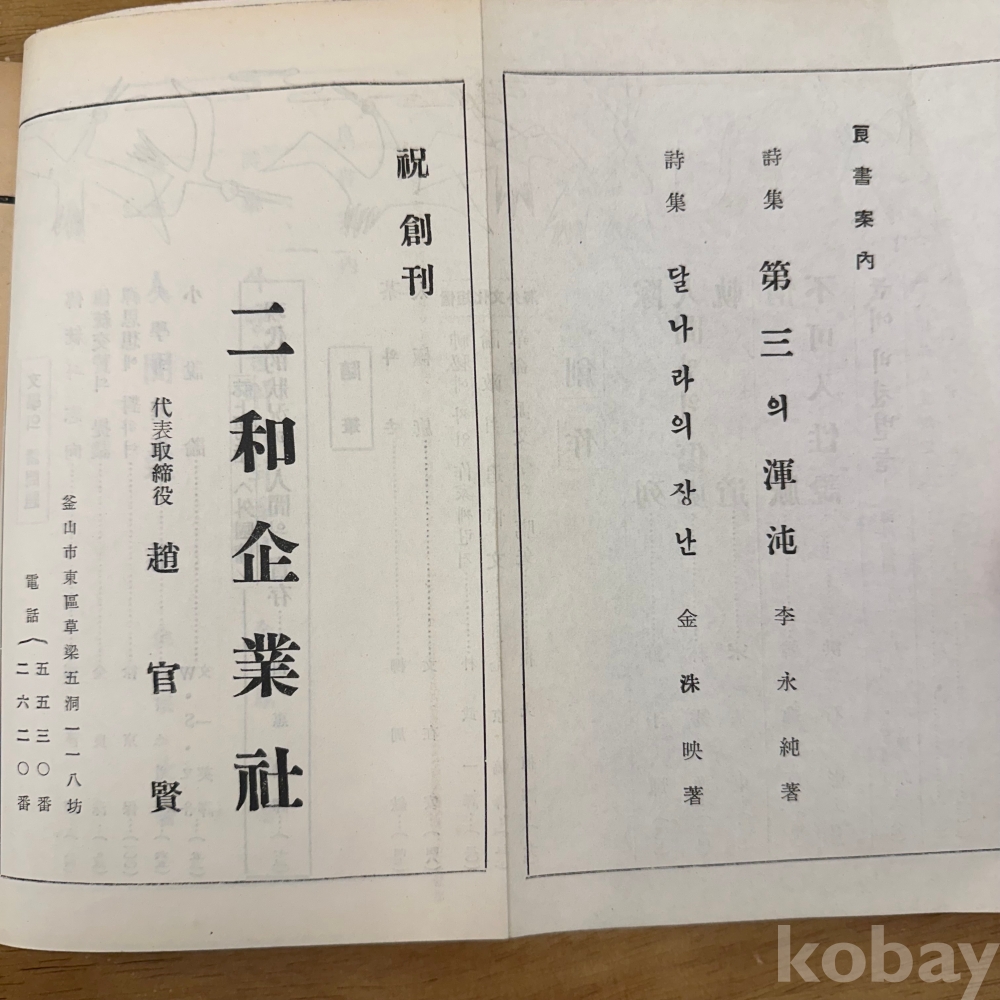 良書案內
詩集 第三의渾沌 李永純著
詩集 달나라의장난 金洙映著
祝創刊
二和企業社
代表取締役 趙官賢
釜山市東區草梁五洞一一八坊
電話(五五三〇番
二六二〇番
kobay